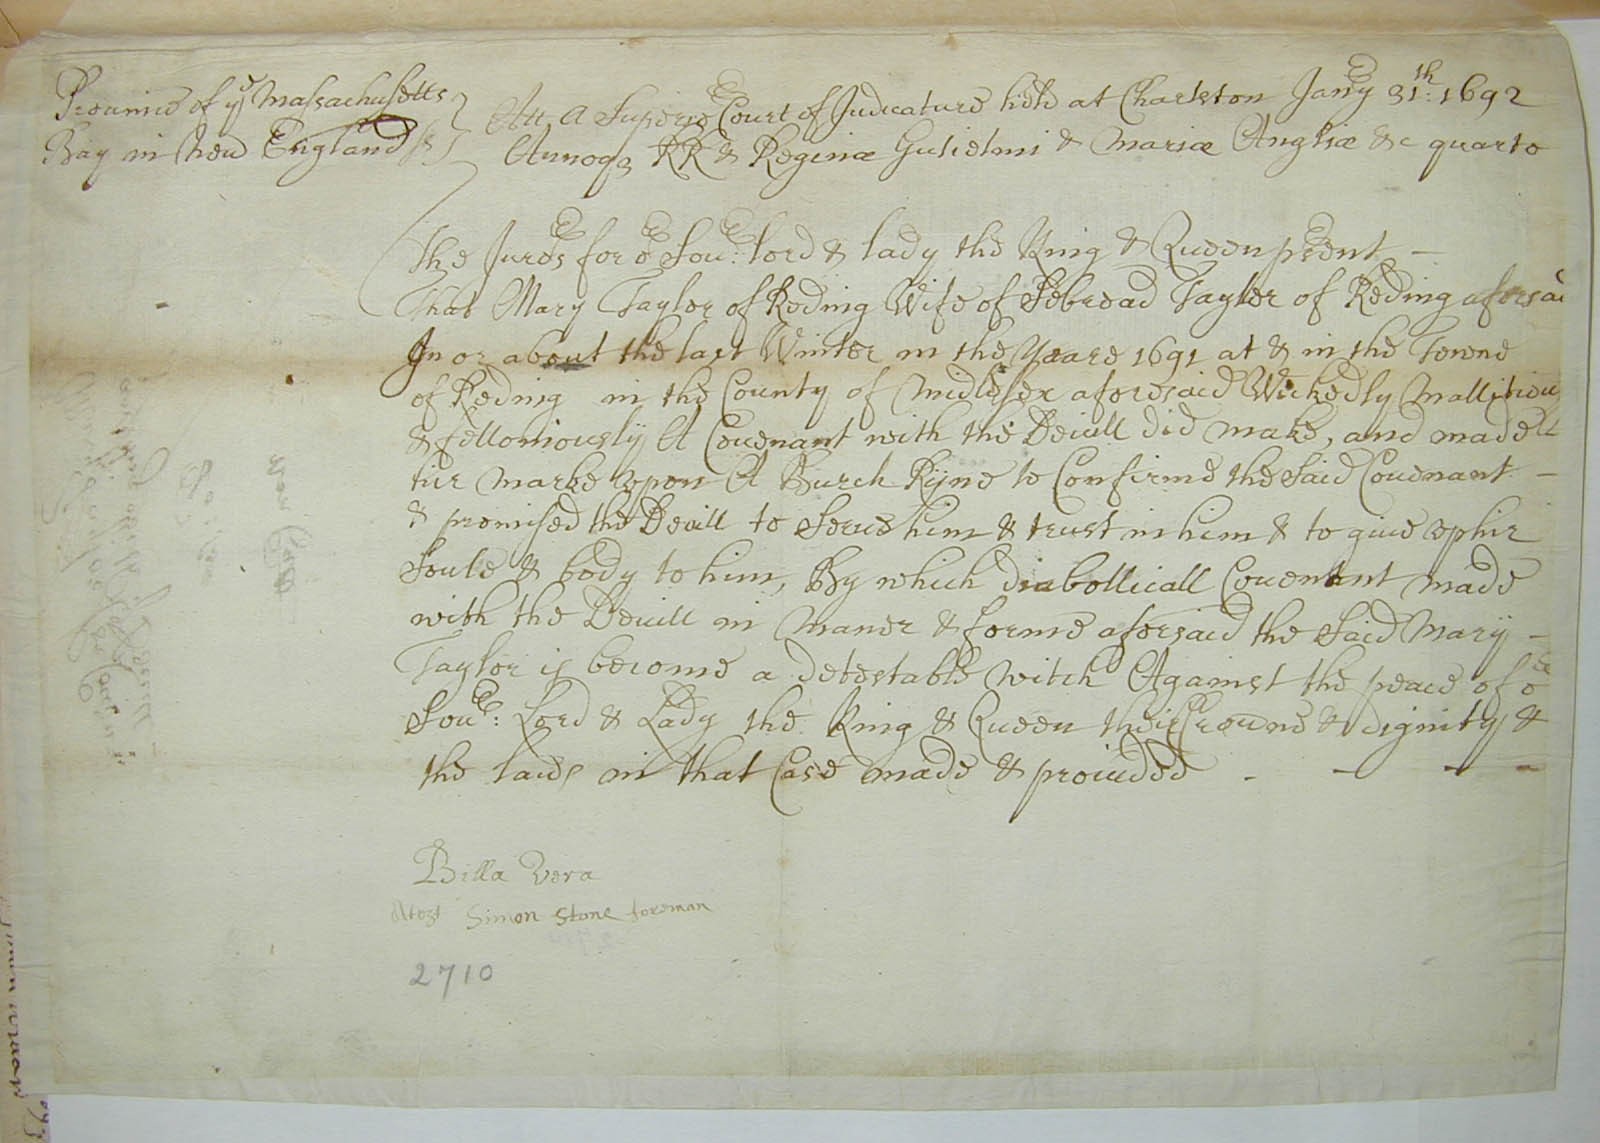 Prouince of yᵉ Massachusetts
Bay in New England ss
Att A Superio Court of Judicature held at Charlston Janʳy 31ᵗʰ: 1692
Annoqȝ RRˢ & Reginæ Gulielmi & Mariæ Angliæ &c quarto
The Juroʳs for oʳ Souʳ: lord & lady the King & Queen pʳsent –
That Mary Taylor of Reding Wife of Sebread Taylor of Reding aforsaid
In or about the last Winter in the Yeare 1691 at & in the Towne
of Reding in the County of Midlesex aforesaid Wickedly Mallitiou
& felloniously A Couenant with the Deuill did make, and made
hir marke vpon A Burch Rijne to Confirme the Said Couenant –
& promised the Deuill to Serue him & trust in him & to giue vp hir
Soule & body to him, By which diabollicall Couenant made
with the Deuill in Maner & forme aforsaid the Said Mary –
Taylor is become a detestable Witch Against the peace of oʳ
Souʳ: Lord & Lady the King & Queen their Crowne & dignity &
the laws in that Case made & prouided - - - -
Billa Vera
Atest Simon Stone foreman
2710